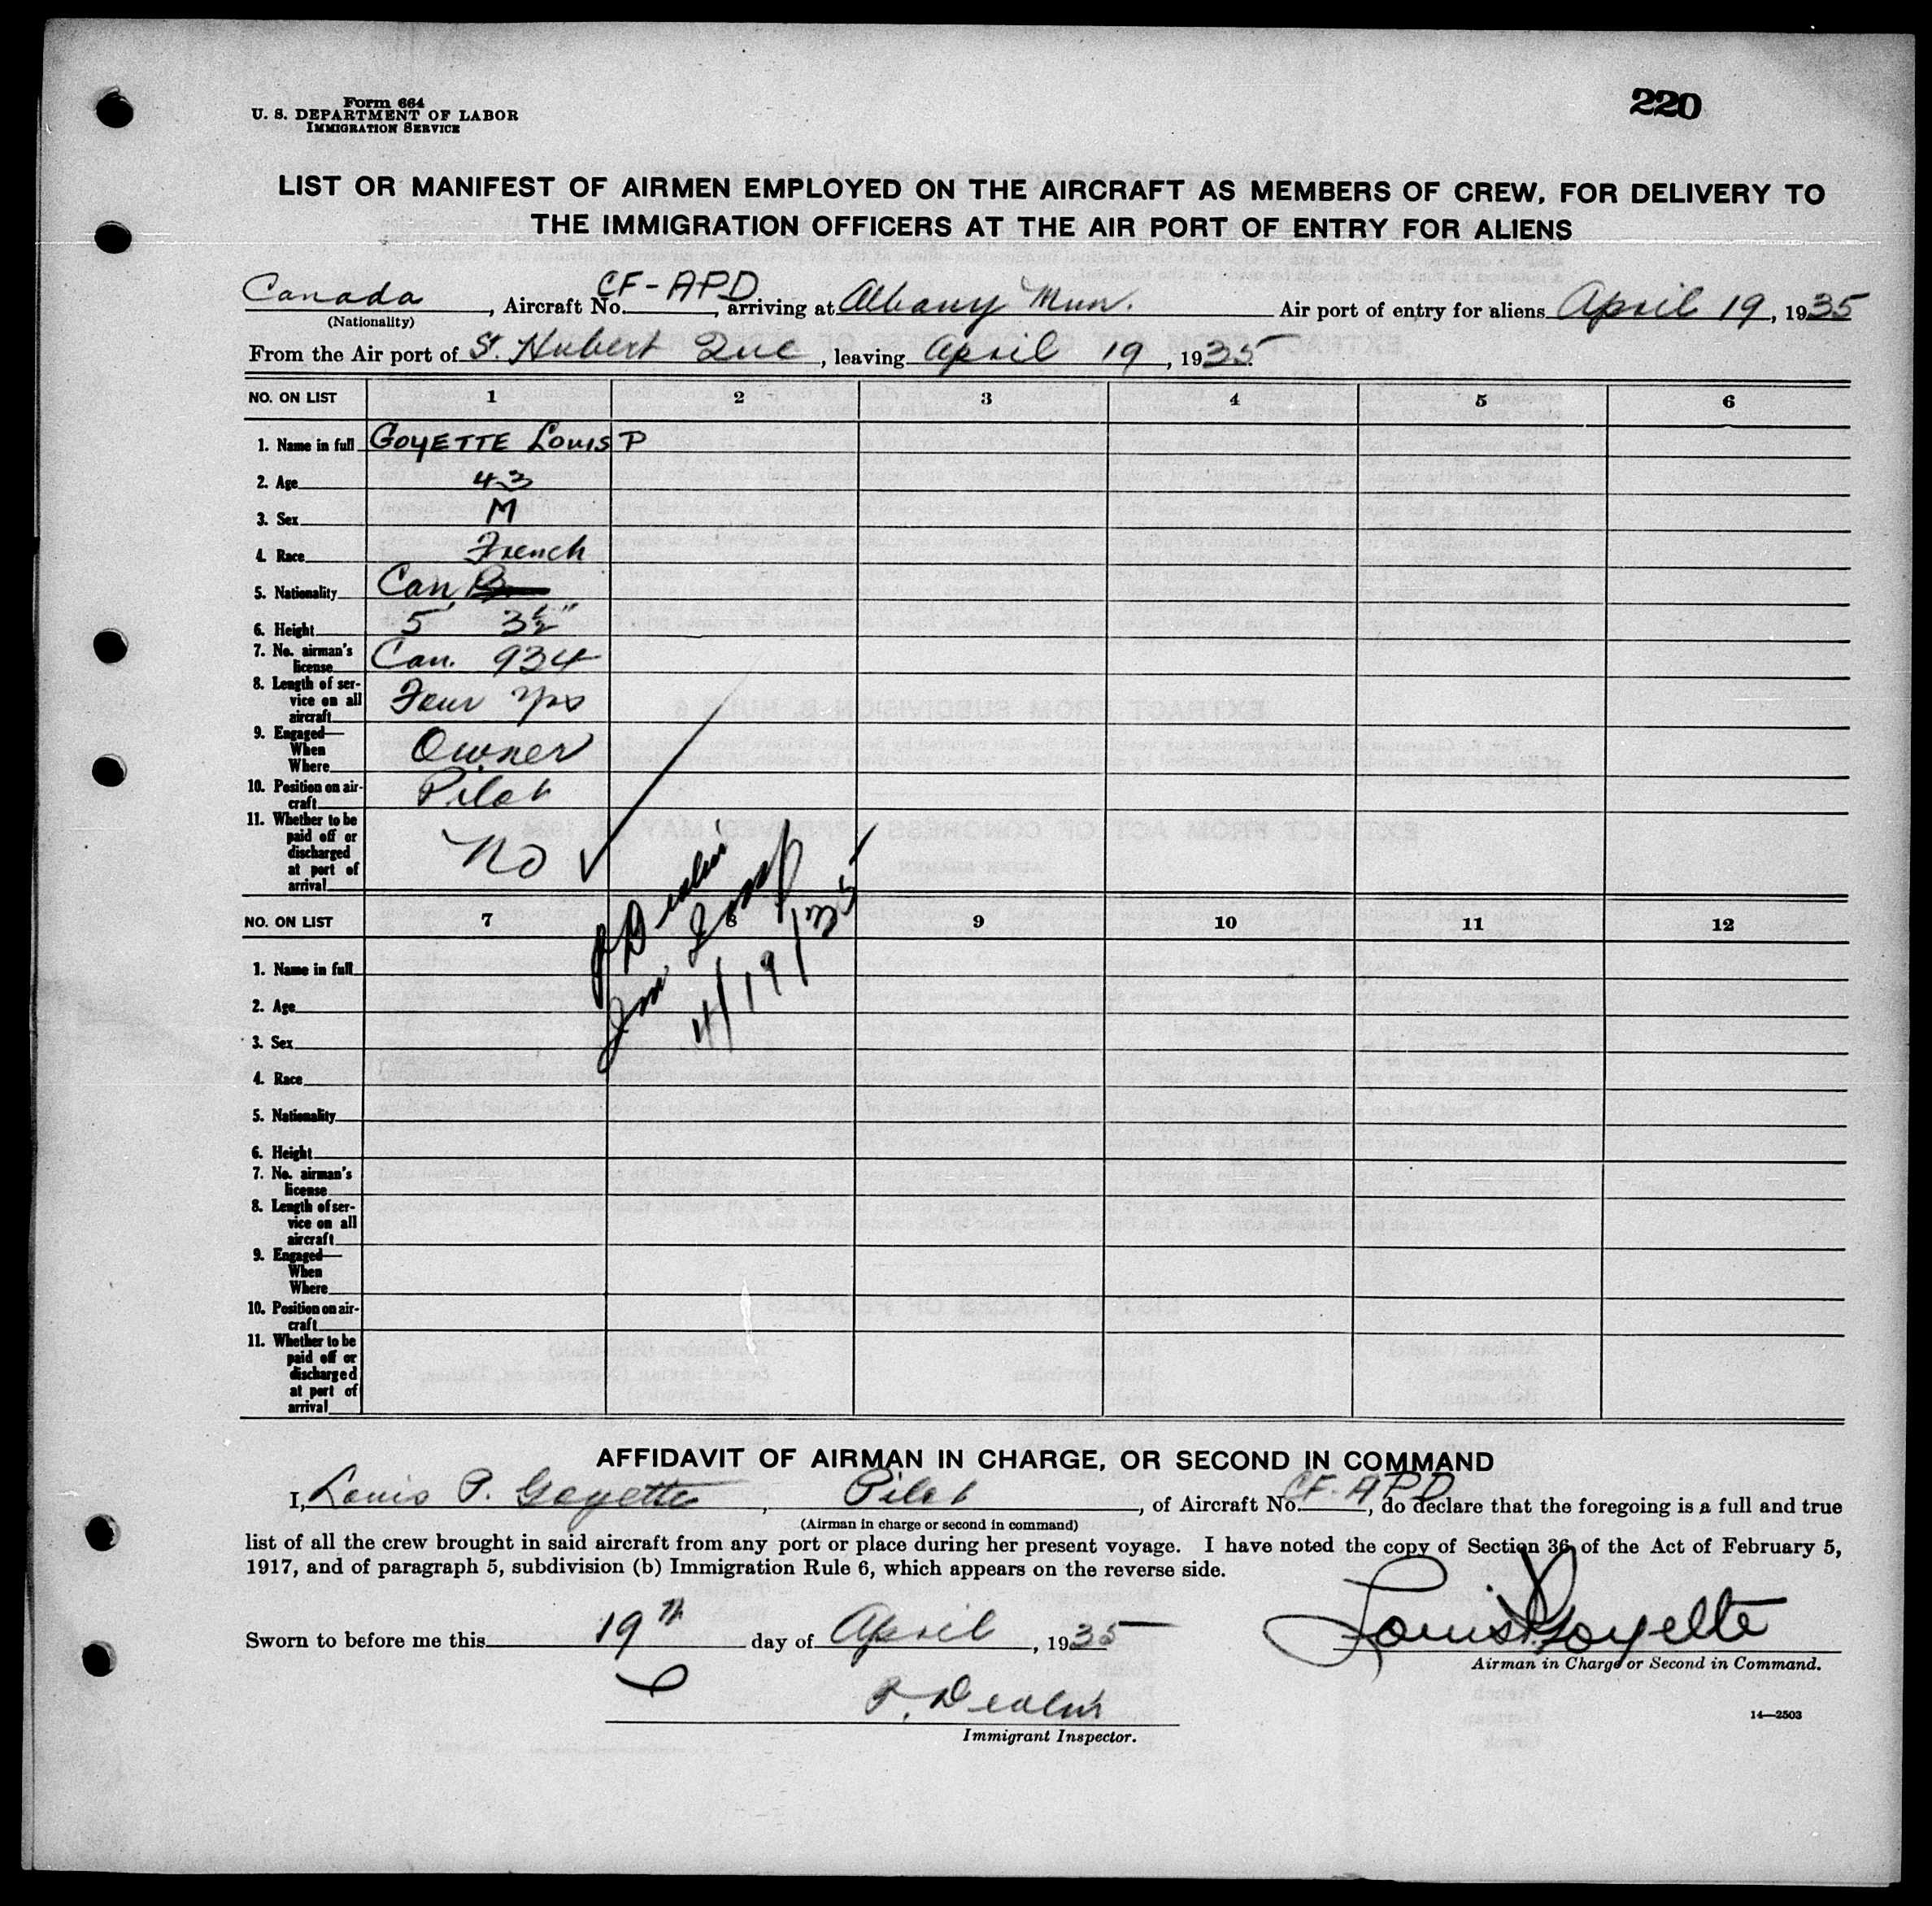 Form 664
U. S. DEPARTMENT OF LABOR
IMMIGRATION SERVICE
220
LIST OR MANIFEST OF AIRMEN EMPLOYED ON THE AIRCRAFT AS MEMBERS OF CREW, FOR DELIVERY TO
THE IMMIGRATION OFFICERS AT THE AIR PORT OF ENTRY FOR ALIENS
Canada, Aircraft No. CF-APD, arriving at Albany Mun. Air port of entry for aliens April 19, 1935
(Nationality)
From the Air port of St. Hubert Que, leaving April 19, 1935
NO. ON LIST 1 2 3 4 5 6
1. Name in full GOYETTE LOUIS P
2. Age 43
3. Sex M
4. Race French
5. Nationality Can.
6. Height 5' 3½"
7. No. airman's
license Can. 934
8. Length of ser-
vice on all
aircraft Four yrs
9. Engaged—
When
Where Owner
10. Position on air-
craft Pilot
11. Whether to be
paid off or
discharged
at port of
arrival No
Imm Insp
4/19/35
NO. ON LIST 7 8 9 10 11 12
1. Name in full
2. Age
3. Sex
4. Race
5. Nationality
6. Height
7. No. airman's
license
8. Length of ser-
vice on all
aircraft
9. Engaged—
When
Where
10. Position on air-
craft
11. Whether to be
paid off or
discharged
at port of
arrival
AFFIDAVIT OF AIRMAN IN CHARGE, OR SECOND IN COMMAND
I, Louis P. Goyette, Pilot, of Aircraft No. CF-APD, do declare that the foregoing is a full and true
(Airman in charge or second in command)
list of all the crew brought in said aircraft from any port or place during her present voyage. I have noted the copy of Section 36 of the Act of February 5,
1917, and of paragraph 5, subdivision (b) Immigration Rule 6, which appears on the reverse side.
Sworn to before me this 19th day of April, 1935
Louis P. Goyette
Airman in Charge or Second in Command.
Immigrant Inspector.
14—2503